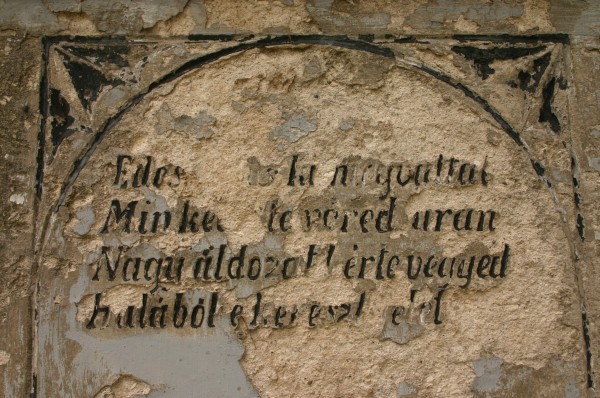 Edes la megváltál
Minket te véred uran
Nagy áldozat érte vegyed
halából e kereszt